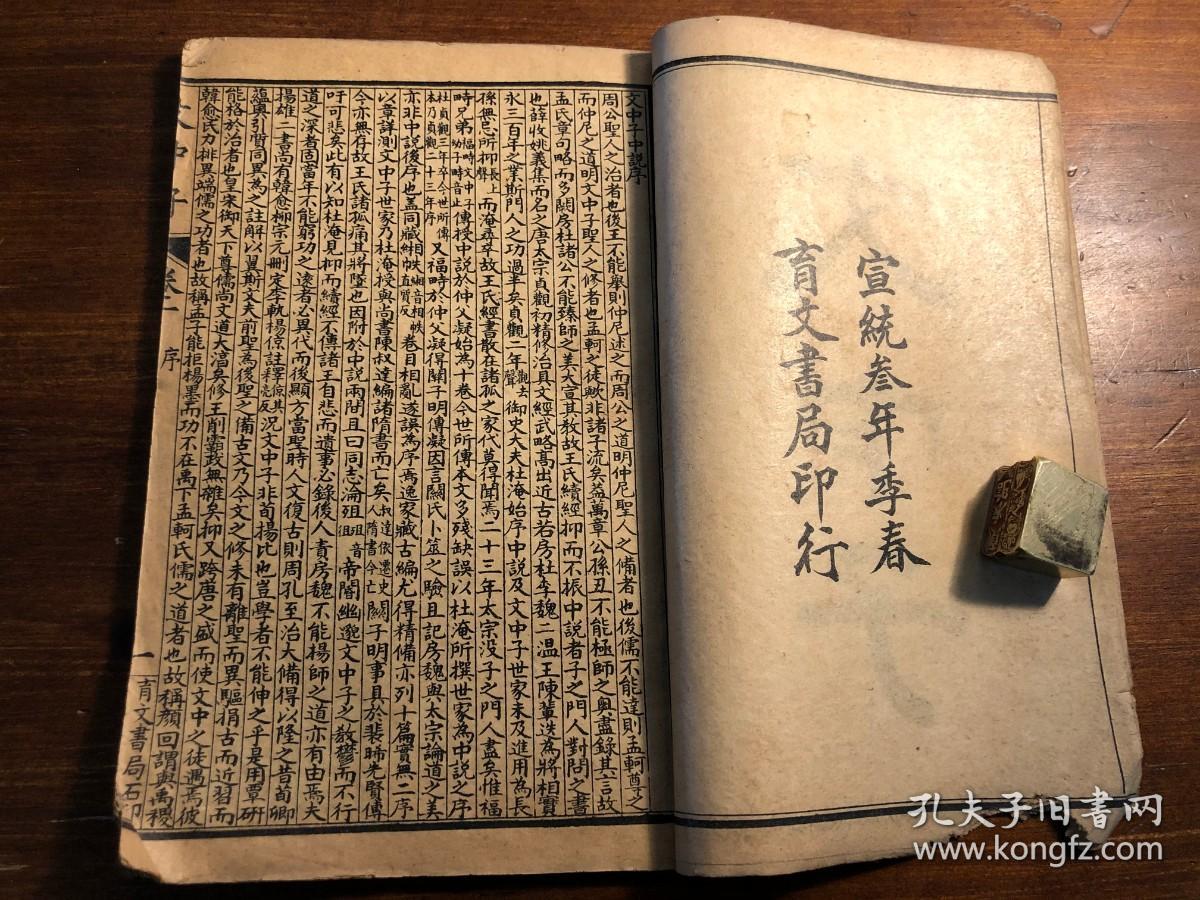 宣統叁年季春
育文書局印行
文中子中説序
周公聖人之治者也後王不能舉則仲尼述之而周公之道明仲尼聖人之備者也後儒不能達則孟軻尊之
而仲尼之道明文中子聖人之修者也孟軻之徒歟非諸子流矣蓋萬章公孫丑不能極師之奧盡錄其言故
孟氏章句略而多闕房杜諸公不能臻師之美大宣其教故王氏續經抑而不振中説者子之門人對問之書
也薛收姚義集而名之唐太宗貞觀初精修治具文經武略高出近古若房杜李魏二温王陳輩迭為將相實
永三百年之業斯門人之功過半矣貞觀二年觀去聲御史大夫杜淹始序中説及文中子世家未及進用為長
孫無忌所抑長上聲而淹尋卒故王氏經書散在諸孤之家代莫得聞焉二十三年太宗没子之門人盡矣惟福
時兄弟福畤文中子幼子畤音止傳授中説於仲父凝始為十卷今世所傳本文多殘缺誤以杜淹所撰世家為中説之序
杜貞觀三年卒今世所傳本乃貞觀二十三年序又福畤於仲父凝得關子明傳凝因言關氏卜筮之驗且記房魏與太宗論道之美
亦非中説後序也蓋同藏緗帙緗音相帙直質反卷目相亂遂誤為序焉逸家藏古編尤得精備亦列十篇實無二序
以章詳測文中子世家乃杜淹授與尚書陳叔達編諸隋書而亡矣叔達依遷史人隋書今亡關子明事具於裴晞先賢傳
今亦無存故王氏諸孤痛其將墜也因附於中説兩間且曰同志淪殂殂音徂帝閽幽邈文中子之教鬱而不行
吁可悲矣此有以知杜淹見抑而續經不傳諸王自悲而遺事必錄後人責房魏不能揚師之道亦有由焉夫
道之深者固當年不能窮功之遠者必異代而後顯方當聖時人文復古則周孔至治大備得以隆之昔荀卿
揚雄二書尚有韓愈柳宗元刪定李軌楊倞註釋倞其亮反況文中子非荀揚比也豈學者不能伸之乎是用覃研
藴奧引質同異為之註解以翼斯文夫前聖為後聖之備古文乃今文之修未有離聖而異驅捐古而近習而
能格於治者也皇宋御天下尊儒尚文道大淳矣修王削霸政無雜矣抑又跨唐之盛而使文中之徒遇焉彼
韓愈氏力排異端儒之功者也故稱孟子能拒楊墨而功不在禹下孟軻氏儒之道者也故稱顔回謂與禹稷
文中子
卷一
序
一
育文書局石印
孔夫子旧書网
www.kongfz.com